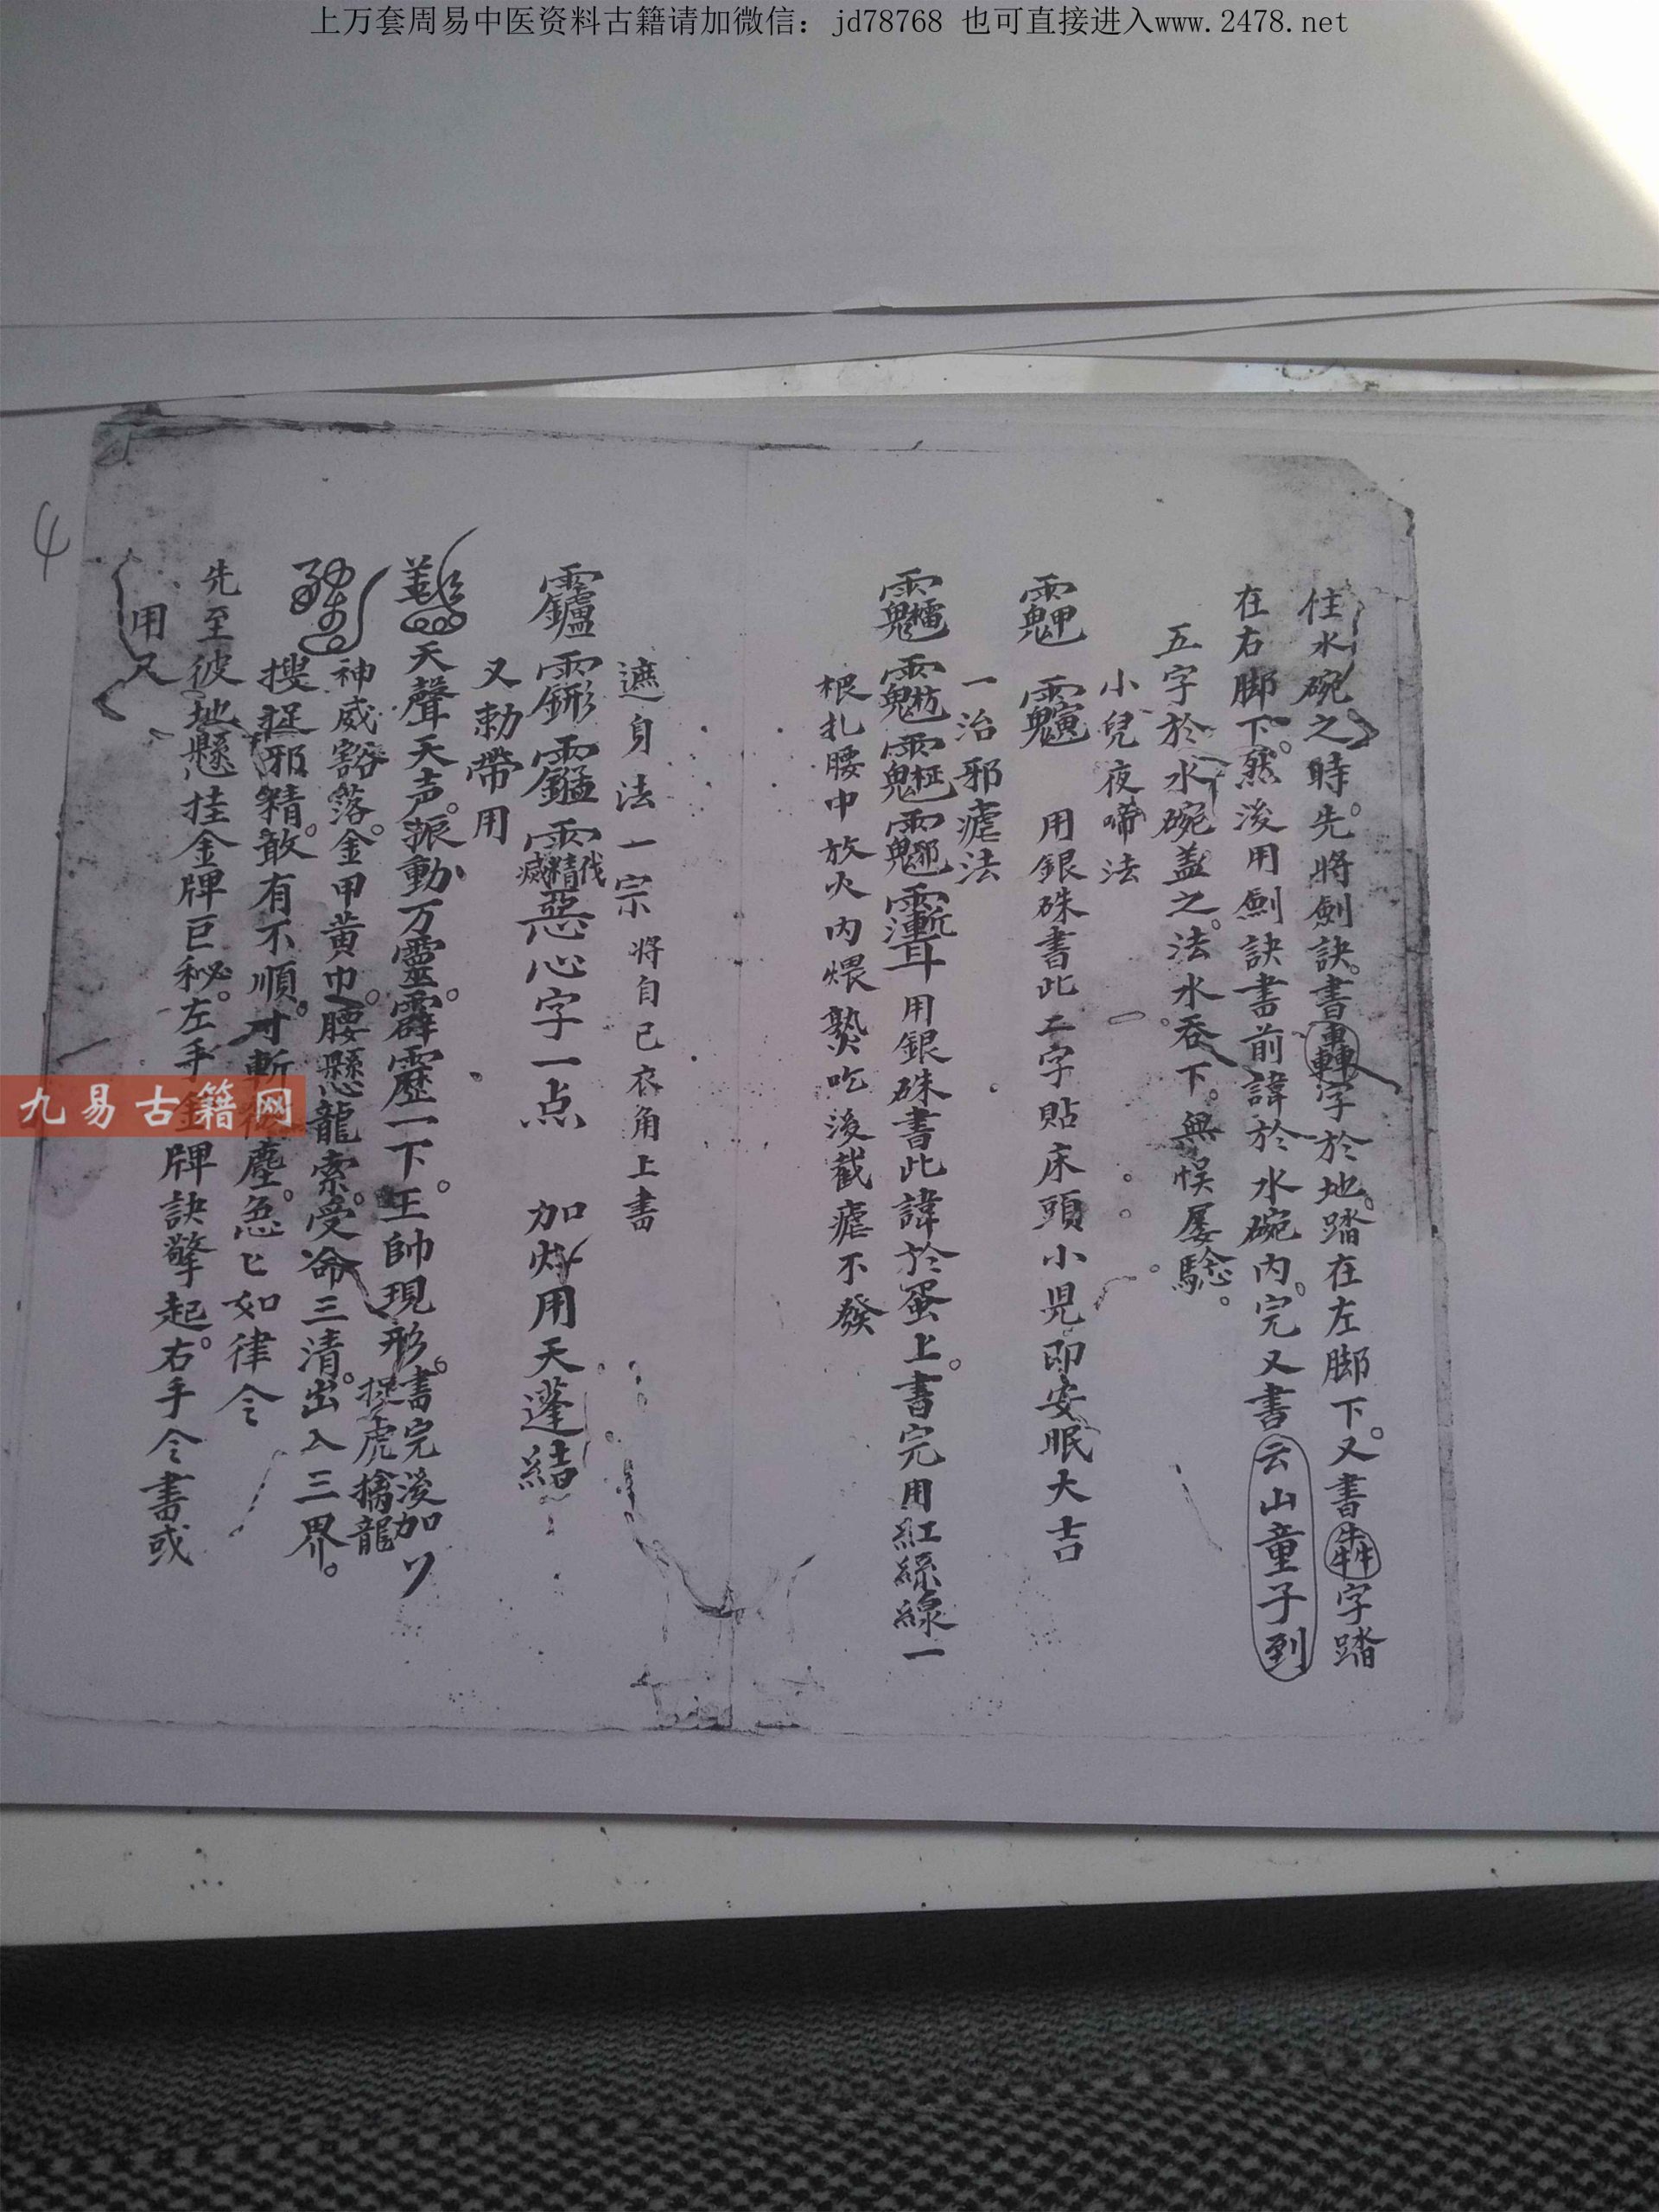 上万套周易中医资料古籍请加微信：jd78768 也可直接进入www.2478.net
住水碗之時。先將劍訣。書轟字於地。踏在左脚下。又書犇字踏
在右脚下。然後用劍訣書前諱於水碗內。完又書云山童子到
五字於水碗盖之。法水吞下。無悮屡驗。
小兒夜啼法
用銀硃書此二字貼床頭小児即安眠大吉
一治邪瘧法
用銀硃書此諱於蛋上。書完用紅絲線一
根扎腰中放火內煨熟吃後截瘧不發
遮身法一宗 將自己衣角上書
惡心字一点 加 用天蓬結
又勅帶用
天聲天声。振動万靈。霹靂一下。王帥現形。書完後加
捉虎擒龍
神威豁落。金甲黄巾。腰懸龍索。受命三清。出入三界。
搜捉邪精。敢有不順。寸斬 塵。急匕如律令
先至彼地懸挂金牌巨秘。左手金牌訣擎起。右手令書或
用又
4
九易古籍网